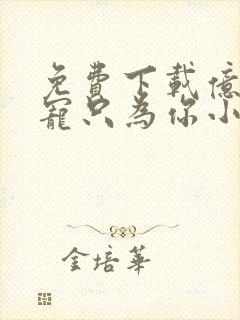 免費下載億
寵只為你小
金培華